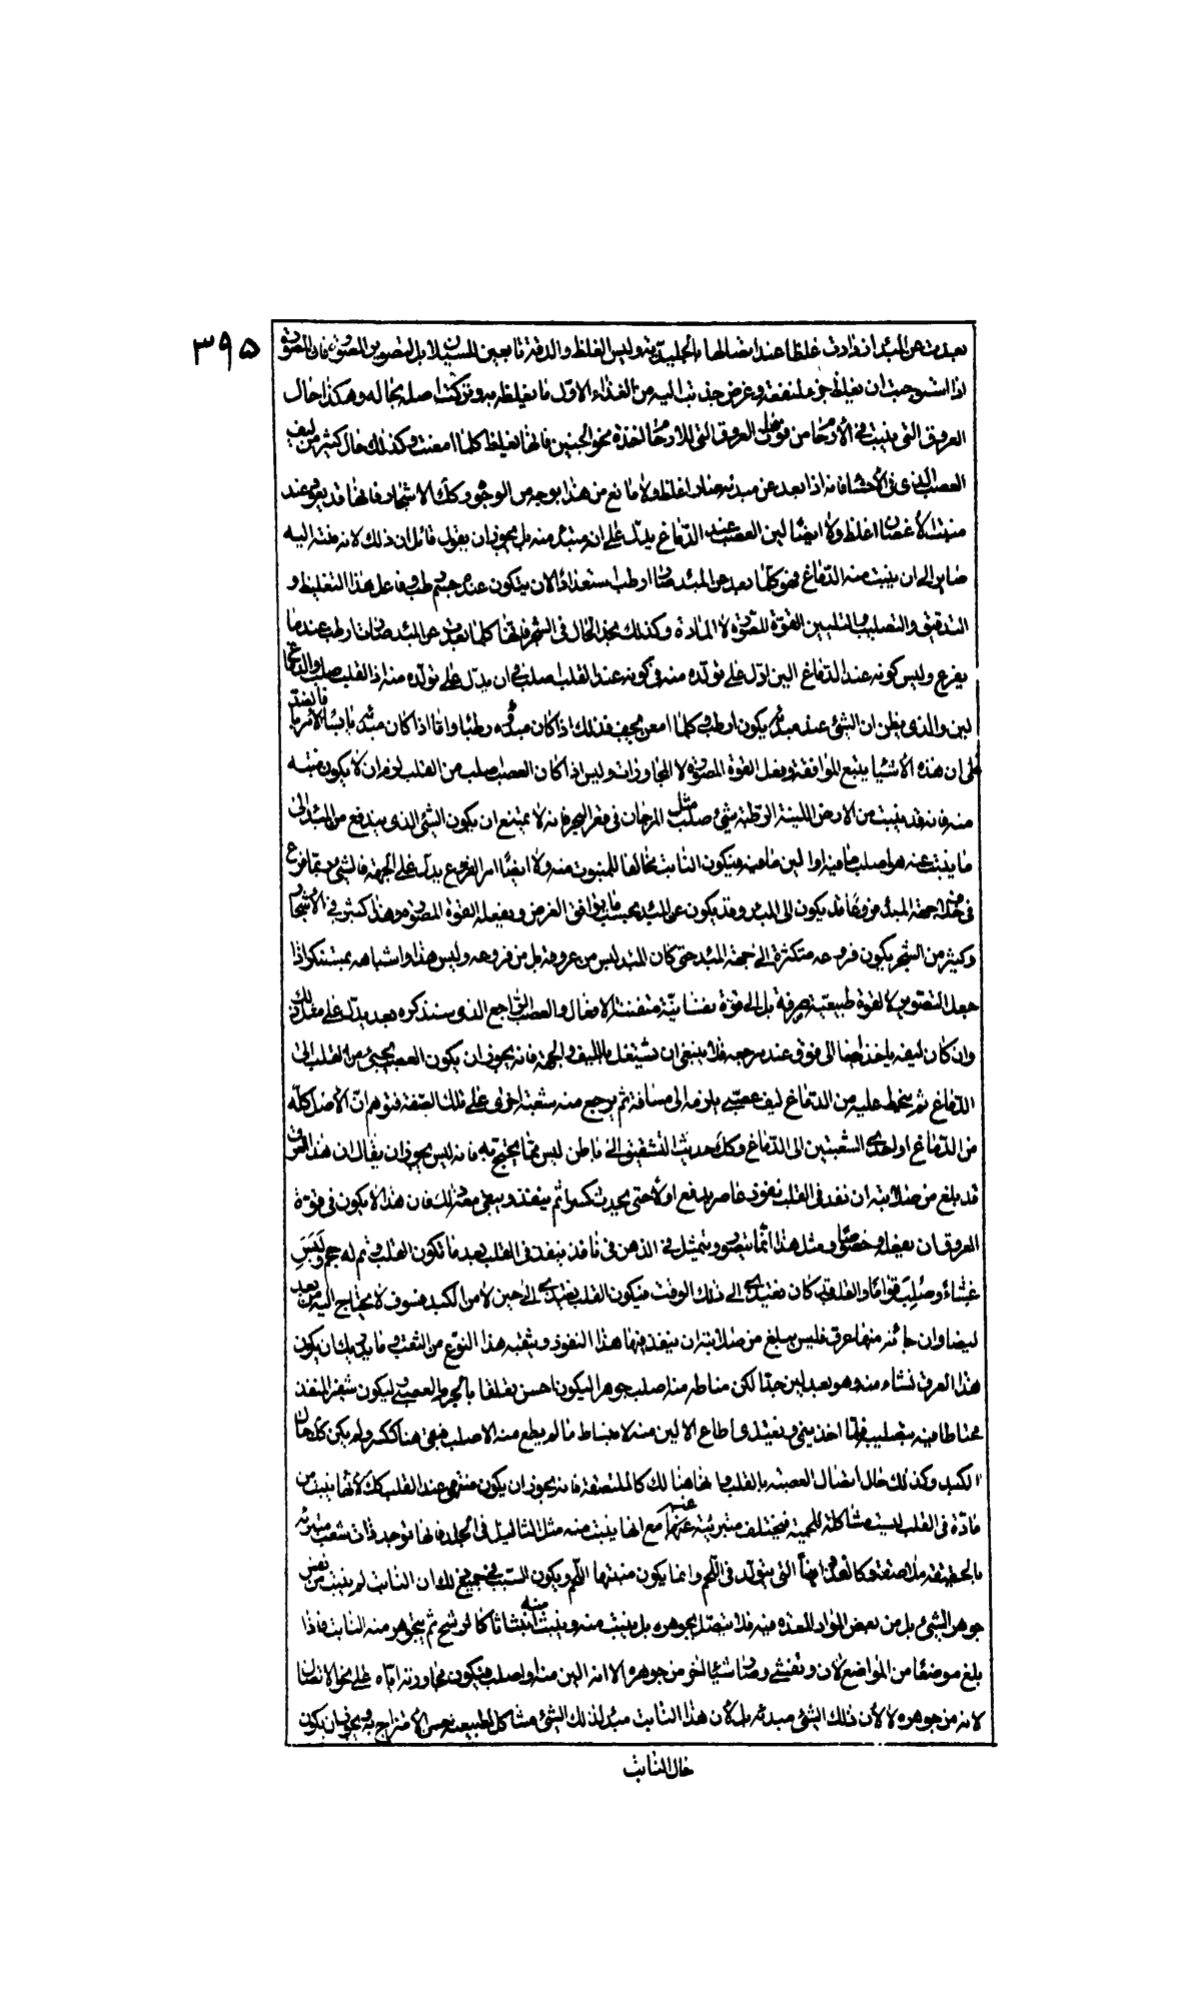 ٣٩۵
بعدت عن المبدأ ازدادت غلظا عند اتصالها بالجليدية وليس الغلظ والدقة تابعين للسيلان بل لتصوير القوة المصورة فان المصورة
اذا استوجبت ان يغلظ جزء لمنفعة وغرض جذبت اليه من الغذاء الاول ما يغلظه به وتركت اصله بحاله وهكذا حال
العروق التى ينبت فى الأرحام من فوق العروق التى للارحام النافذة نحو الجنين فانها تغلظ كلما امعنت وكذلك حال كثير من ليف
العصب الذى فى الأحشا فانه اذا بعد عن مبدئه صار اغلظ ولا مانع من هذا بوجه من الوجوه وكك الاشجار فانها قد يعرض عند
منبت الأغصان اغلظ ولا ايضا لين العصب عند الدماغ يدل على ان منبته منه بل يجوز ان يقول قائل ان ذلك لانه منته اليه
صاير الى ان ينبت منه الدماغ فهو كلما بعد عن المبدء صار ارطب استعدادا لان يتكون عنده جسم رطب وفاعل هذا التغليظ و
التدقيق والتصليب والتليين القوة المصورة لا المادة وكذلك نجد الحال فى الشجر فانها كلما بعدت عن المبدء صارت ارطب عند ما
يفرع وليس كونه عند الدماغ الين ادل على تولده منه فى كونه عند القلب اصلب من ان يدل على تولده منه اذ القلب صلب والدماغ
لين والذى يظن ان الشئ عند مبدئه يكون ارطب وكلما امعن يجف فذلك اذا كان مبدؤه رطبا واما اذا كان مبدئه يابسا فالأمر بالضد
على ان هذه الأشيا يتبع الموافقة وفعل القوة المصورة لا المجاورات وليس اذا كان العصب اصلب من القلب لزم ان لا يكون منبته
منه فانه قد ينبت من الارض اللينة الرطبة شئ صلب مثل المرجان فى قعر البحر فانه لا يمتنع ان يكون الشئ الذى يندفع من المبدء الى
ما ينبت عنه هو اصلب ما فيه او الين ما فيه فيكون النابت مخالفا للمنبوت منه ولا ايضا امر الفروع يدل على الجهة فالشئ ربما فرع
فى ضد جهة المبدء فروعا قد يكون الى المبدء وقد يكون عن المبدء بحسب ما يوافق الغرض ويفعله القوة المصورة وهذا كثير فى الأشجار
وكثير من الشجر يكون فروعه متكثرة الى جهة المبدء حتى كان المبدء ليس من عروقه بل من فروعه وليس هذا واشباهه بمستنكر اذا
جعل التصوير لا لقوة طبيعية صرفة بل الى قوة نفسانية متفننة الافعال والعصب الراجع الذى سنذكره بعد يدل على مثل ذلك
وان كان ليفه ياخذ ايضا الى فوق عند مرجعه فلا ينبغى ان تشتغل بالليف والجهة فانه يجوز ان يكون العصب يجئ من القلب الى
الدماغ ثم ينحط عليه من الدماغ ليف عصبى يلزمه الى مسافة ثم يرجع منه شعبة اخرى على تلك الصفة فتوهم ان الأصل كله
من الدماغ او احدى الشعبتين الى الدماغ وكك حديث التشقيق الى باطن ليس مما يحتج به فانه ليس يجوز ان يقال ان هذا العرق
قد بلغ من صلابته ان نفذ فى القلب نفوذ غاصر يدفع اولا حتى يحدث كسرا ثم ينفذ ويبقى معه ذلك فان هذا لا يكون فى قوة
العروق ان يفعله وخصوصا ومثل هذا انما يتصور ويتمثل فى الذهن فى نافذ ينفذ فى القلب بعد ما تكون القلب وتم له حجم ولبس
غشاء وصلب قواما والقلب قد كان يغتذى الى ذلك الوقت فيكون القلب يغتذى الى حين لا من الكبد فسوف لا يحتاج اليه من بعد
ايضا وان جائه منها عرق فليس يبلغ من صلابته ان ينفذ فيها هذا النفوذ ويثقبه هذا النوع من الثقب وما يدريك ان يكون
هذا العرق نشاء منه وهو بعد لين جدا لكن مناطه منه اصلب جوهرا ليكون احسن تعلقا بالجرم العصبى ليكون شفر المنفذ
محتاطا فيه بتصليب فلما اخذ ينمى ويغتذى اطاع الالين منه لانبساط ما لم يطع منه الاصلب فبقى هناك كسر ولم يكن كك حال
الكبد وكذلك حال اتصال العصبة بالقلب وانها هنالك كالملتصقة فانه يجوز ان يكون منتهى عند القلب كك لأنها ينبت من
مادة فى القلب ليست مشاكلة للحمية فيختلف متبرئة عنها مع انها ينبت منه مثل الثاليل فى الجلد فانها توجد ذات شعب متبرئه
بالحقيقه ملاصقة وكالغدد ايضا التى يتولد فى اللحم وانما يكون منبتها اللحم ويكون السبب فى جميع ذلك ان النابت لم ينبت من نفس
جوهر الشئ بل من بعض المواد المعدة فيه فلا يتصل بجوهره بل ينبت منه وينبت منه انبثاثا كالرشح ثم يتجوهر منه النابت فاذا
بلغ موضعا من المواضع لان وتفشى وصار شيئا اخر من جوهره الا انه الين منه او اصلب فيكون مجاورته اياه على نحو الاتصال
لانه من جوهره لا لأن ذلك الشئ مبدئه بل لأن هذا النابت مبدء لذلك الشئ مشاكل لطبيعته حسن الامتزاج به ويجوز ان يكون
حال النابت